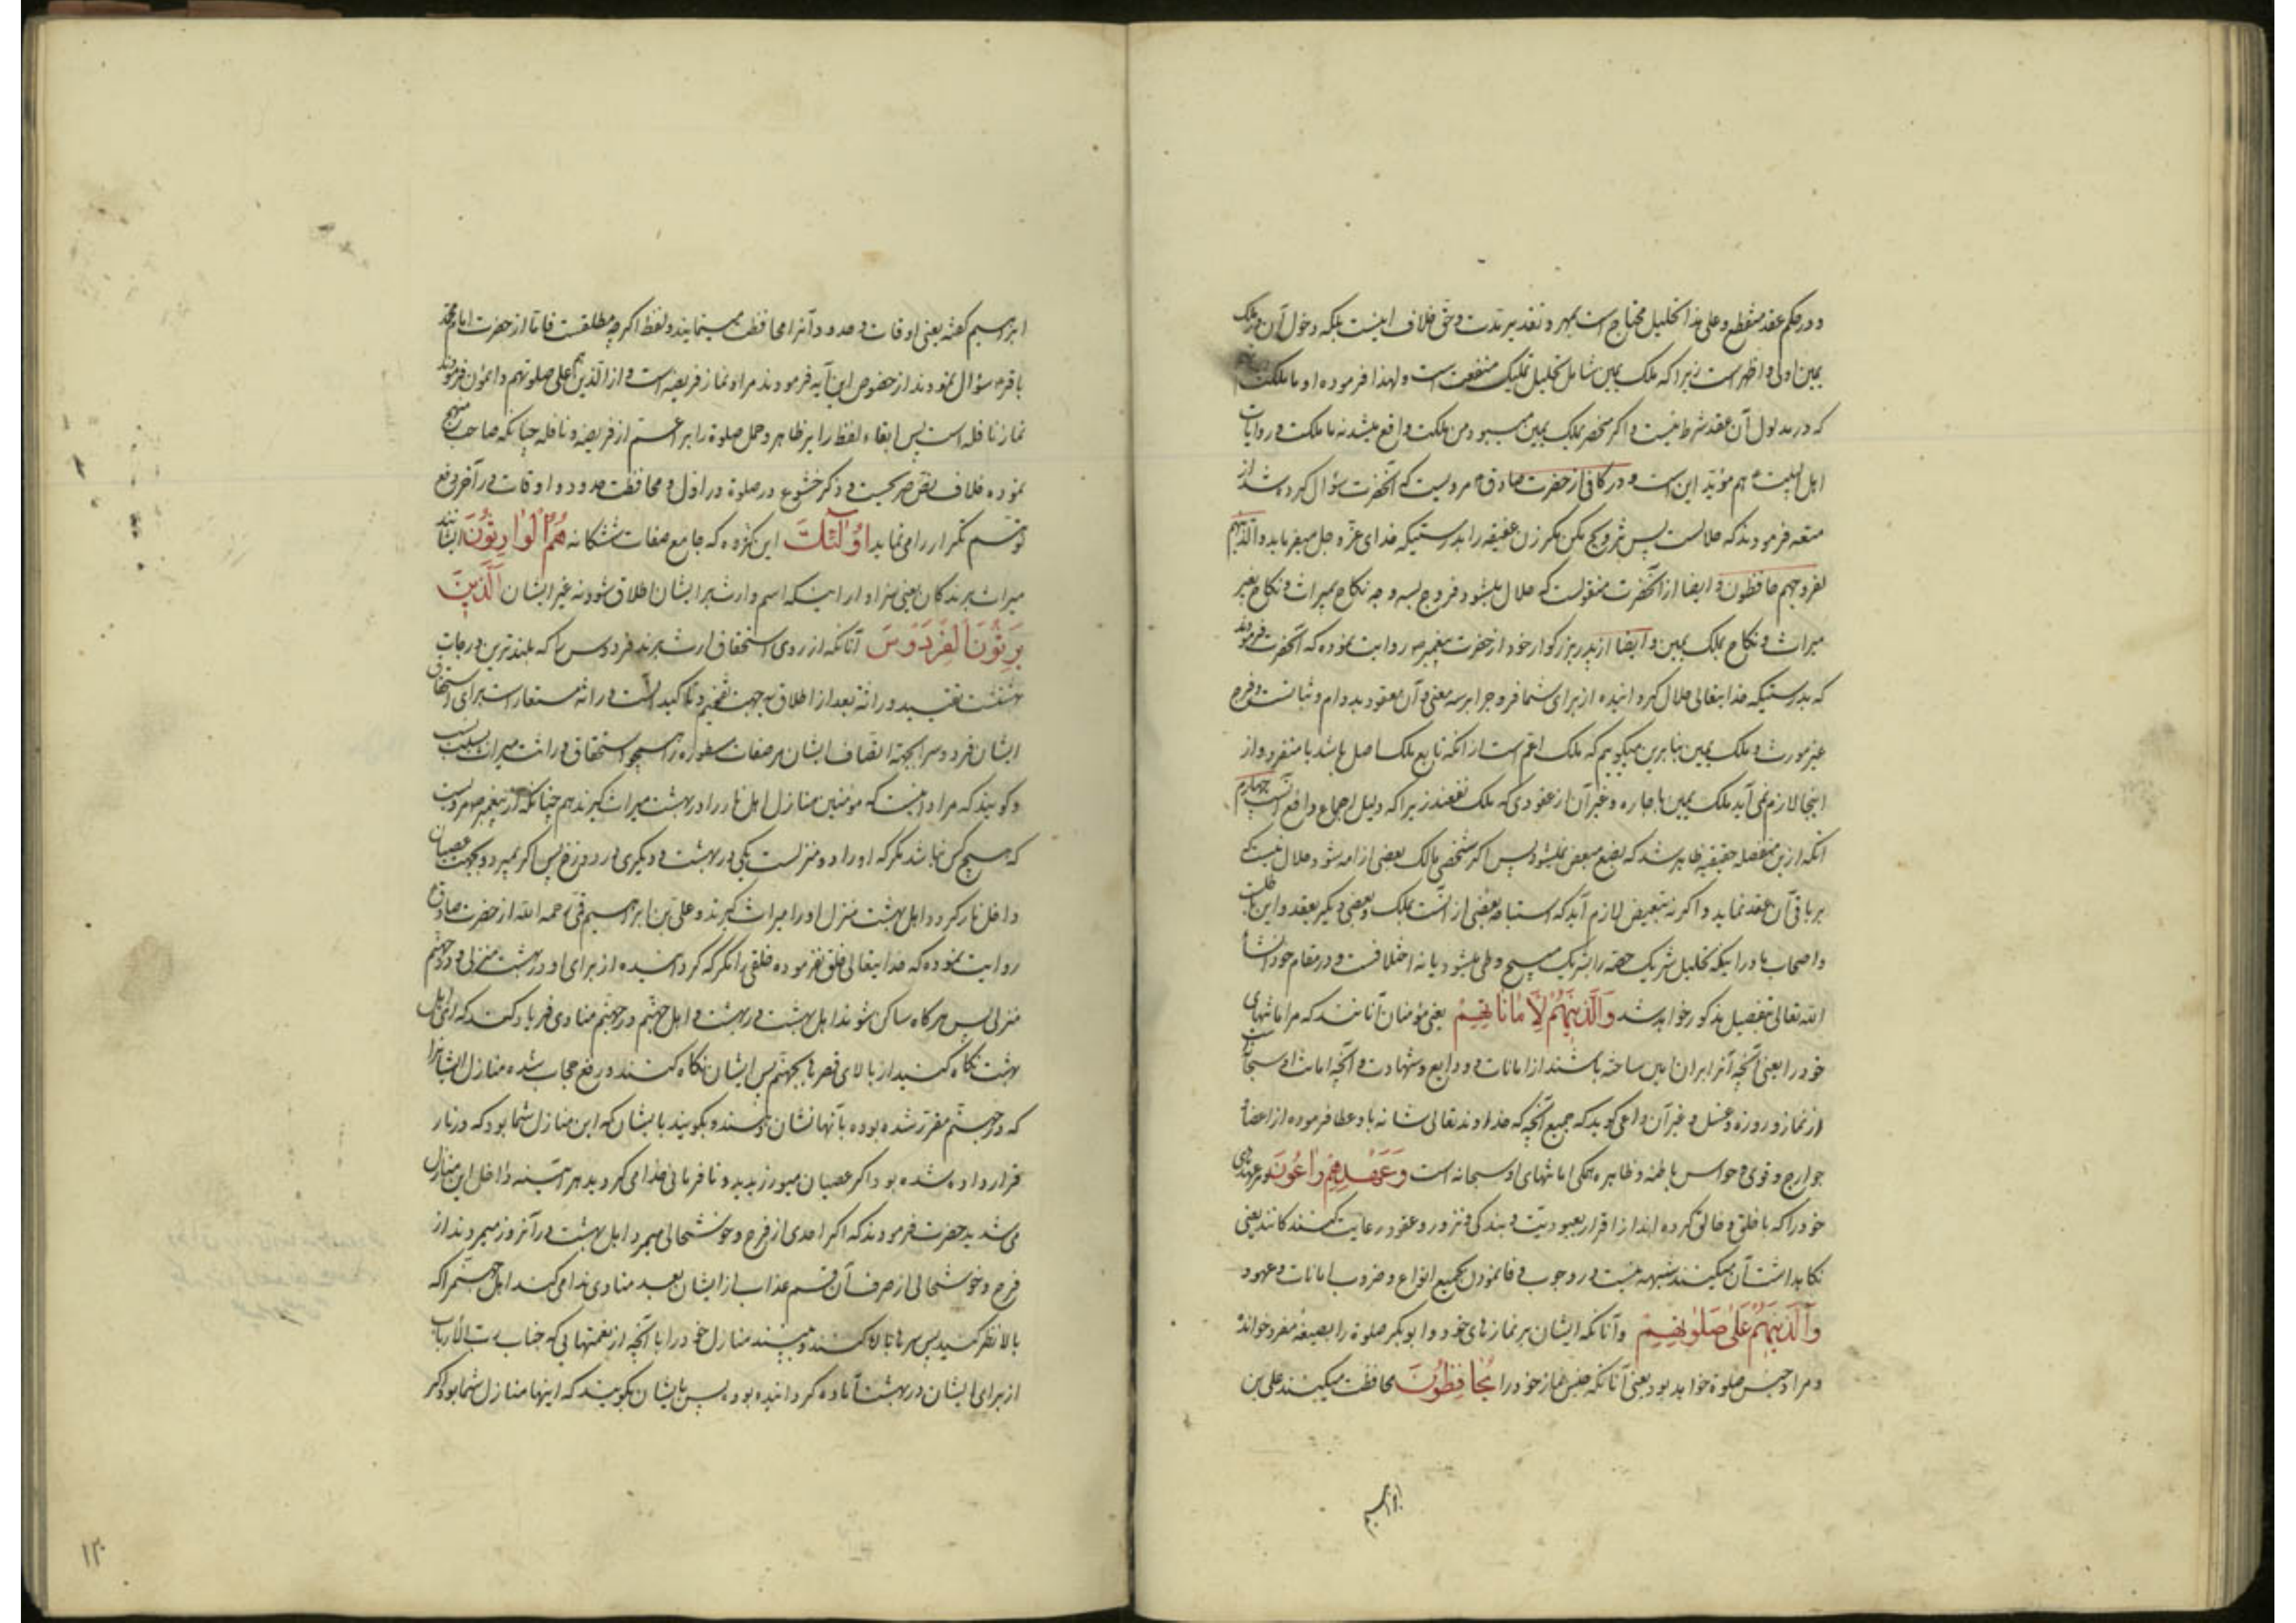 و در حکم عقد منقطع و علی هذا تحلیل محتاج است بمهر و تقدیر مدت و حق خلاف اینست بلکه دخول آن در ملک
یمین اولی و اظهر است زیرا که ملک یمین شامل تحلیل تملیک منفعت است و لهذا فرموده او ما ملکت
که در مدلول آن عقد شرط نیست و اگر منحصر بملک یمین میبود من ملکت واقع میشد نه ما ملکت و روایات
اهل البیت هم مؤید این است و در کافی از حضرت صادق مرویست که آنحضرت سؤال کرده شد از
متعه فرمودند که حلالست پس تزویج مکن مگر زن عفیفه را بدرستیکه خدای عز و جل میفرماید و الذینهم
لفروجهم حافظون و ایضا از آنحضرت منقولست که حلال میشود فروج بسه وجه نکاح بمیراث و نکاح بغیر
میراث و نکاح بملک یمین و ایضا از پدر بزرگوار خود از حضرت پیغمبر ص روایت نموده که آنحضرت فرمودند
که بدرستیکه خدایتعالی حلال گردانیده از برای شما فروج را بر سه معنی و آن معقود بدوام و ثباتست و فرج
غیر مورث و ملک یمین بنابرین میگوییم که ملک اعم است از انکه تابع ملک اصل باشد یا منفرد و از
اینجا لازم نمی آید ملک یمین باجاره و غیر آن از عقودی که ملک نفعند زیرا که دلیل اجماع واقع است چهارم
انکه ازین منفصله حقیقیه ظاهر شد که بضع مبعض نمیشود پس اگر شخصی مالک بعضی از امه شود حلال نیست که
بر باقی آن عقد نماید و اگر نه تبعیض لازم آید که استباحه بعضی از آنست بملک و بعضی دیگر بعقد و این باطلست
و اصحاب ما در اینکه تحلیل شریک حصه را بشریک مبیح وطی میشود یا نه اختلافست و در مقام خود انشاء
الله تعالی بتفصیل مذکور خواهد شد وَالَّذینَهُمْ لِاَمٰانٰاتِهِمْ یعنی مؤمنان آنانند که مر امانتهای
خود را یعنی آنچه آنرا بران امین ساخته باشند از امانات و ودایع و شهادت و آنچه امانت او سبحانست
از نماز و روزه و غسل و غیر آن داعی گوید که جمیع آنچه که خداوند تعالی شانه باو عطا فرموده از اعضاء
جوارح و قوی و حواس باطنه و ظاهره همگی امانتهای او سبحانه است وَعَهْدِهِمْ رٰاعُونَ و مر عهدهای
خود را که با خلق و خالق کرده اند از اقرار بعبودیت و بندگی و نزور و عقود رعایت کنندکانند یعنی
نگاهداشت آن میکنند شبهه نیست در وجوب وفا نمودن بجمیع انواع و ضروب امانات و عهود
وَالَّذینَهُمْ عَلیٰ صَلَوٰتِهِمْ و آنانکه ایشان بر نمازهای خود و ابو بکر صلوة را بصیغه مفرد خوانده
و مراد جنس صلوة خواهد بود یعنی آنانکه جنس نماز خود را یُحٰافِظُونَ محافظت میکنند علی بن
ابراهیم
ابراهیم گفته یعنی اوقات و حدود آنرا محافظت مینمایند و لفظ اگرچه مطلقست فاتا از حضرت امام محمد
باقر ع سؤال نمودند از خصوص این آیه فرمودند مراد نماز فریضه است و از الذین هم علی صلوتهم دائمون فرمودند
نماز نافله است پس ابقاء لفظ را بر ظاهر و حمل صلوة را بر اعم از فریضه و نافله چنانکه صاحب منهج
نموده خلاف نص صریحست و ذکر خشوع در صلوة در اول و محافظت حدود و اوقات در آخر دفع
توهم تکرار را می نماید اُولٰئِکَ این گروه که جامع صفات ششگانه هُمُ الْوٰارِثُونَ ایشانند
میراث برندکان یعنی سزاوار اینکه اسم وارث بر ایشان اطلاق شود نه غیر ایشان اَلَّذینَ
یَرِثُونَ الْفِرْدَوْسَ آنانکه از روی استحقاق ارث برند فردوس را که بلندترین درجات
بهشتست تقیید وراثه بعد از اطلاق بجهت تفخیم و تاکید است و وراثه مستعار است برای استحقاق
ایشان فردوس را بجهة اتصاف ایشان بر صفات مسطوره همچو استحقاق وراثت میراث بسبب نسب
و گویند که مراد اینست که مؤمنین منازل اهل نار را در بهشت میراث گیرند هم چنانکه از پیغمبر ص مرویست
که هیچ کس نباشد مگر که او را دو منزلست یکی در بهشت و دیگری در دوزخ پس اگر بمیرد و بجهت عصیان
داخل نار گردد اهل بهشت منزل او را میراث گیرند و علی بن ابراهیم قمی رحمه الله از حضرت صادق ع
روایت نموده که خدایتعالی خلق نفرموده خلقی را مگر که گردانیده از برای او در بهشت منزلی و در جهنم
منزلی پس هرگاه ساکن شوند اهل بهشت در بهشت و اهل جهنم در جهنم منادی فریاد کند که ای اهل
بهشت نگاه کنید از بالای قصرها بجهنم پس ایشان نگاه کنند و رفع حجاب شده منازل ایشانرا
که در جهنم مقرر شده بوده بآنها نشان دهند و بگویند بایشان که این منازل شما بود که در نار
قرار داده شده بود اگر عصیان میورزیدید و نافرمانی خدا می کردید هر آینه داخل این منازل
می شدید حضرت فرمودند که اگر احدی از فرح و خوشحالی میمرد اهل بهشت در آنروز میمردند از
فرح و خوشحالی از صرف آن قسم عذاب از ایشان بعد منادی ندا می کند اهل جهنم را که
بالا نظر کنید پس سرها بالا کنند و ببینند منازل خود را با آنچه از نعمتهایی که جناب رب الارباب
از برای ایشان در بهشت آماده گردانیده بوده پس بایشان بگویند که اینها منازل شما بود اگر
۱۲۰